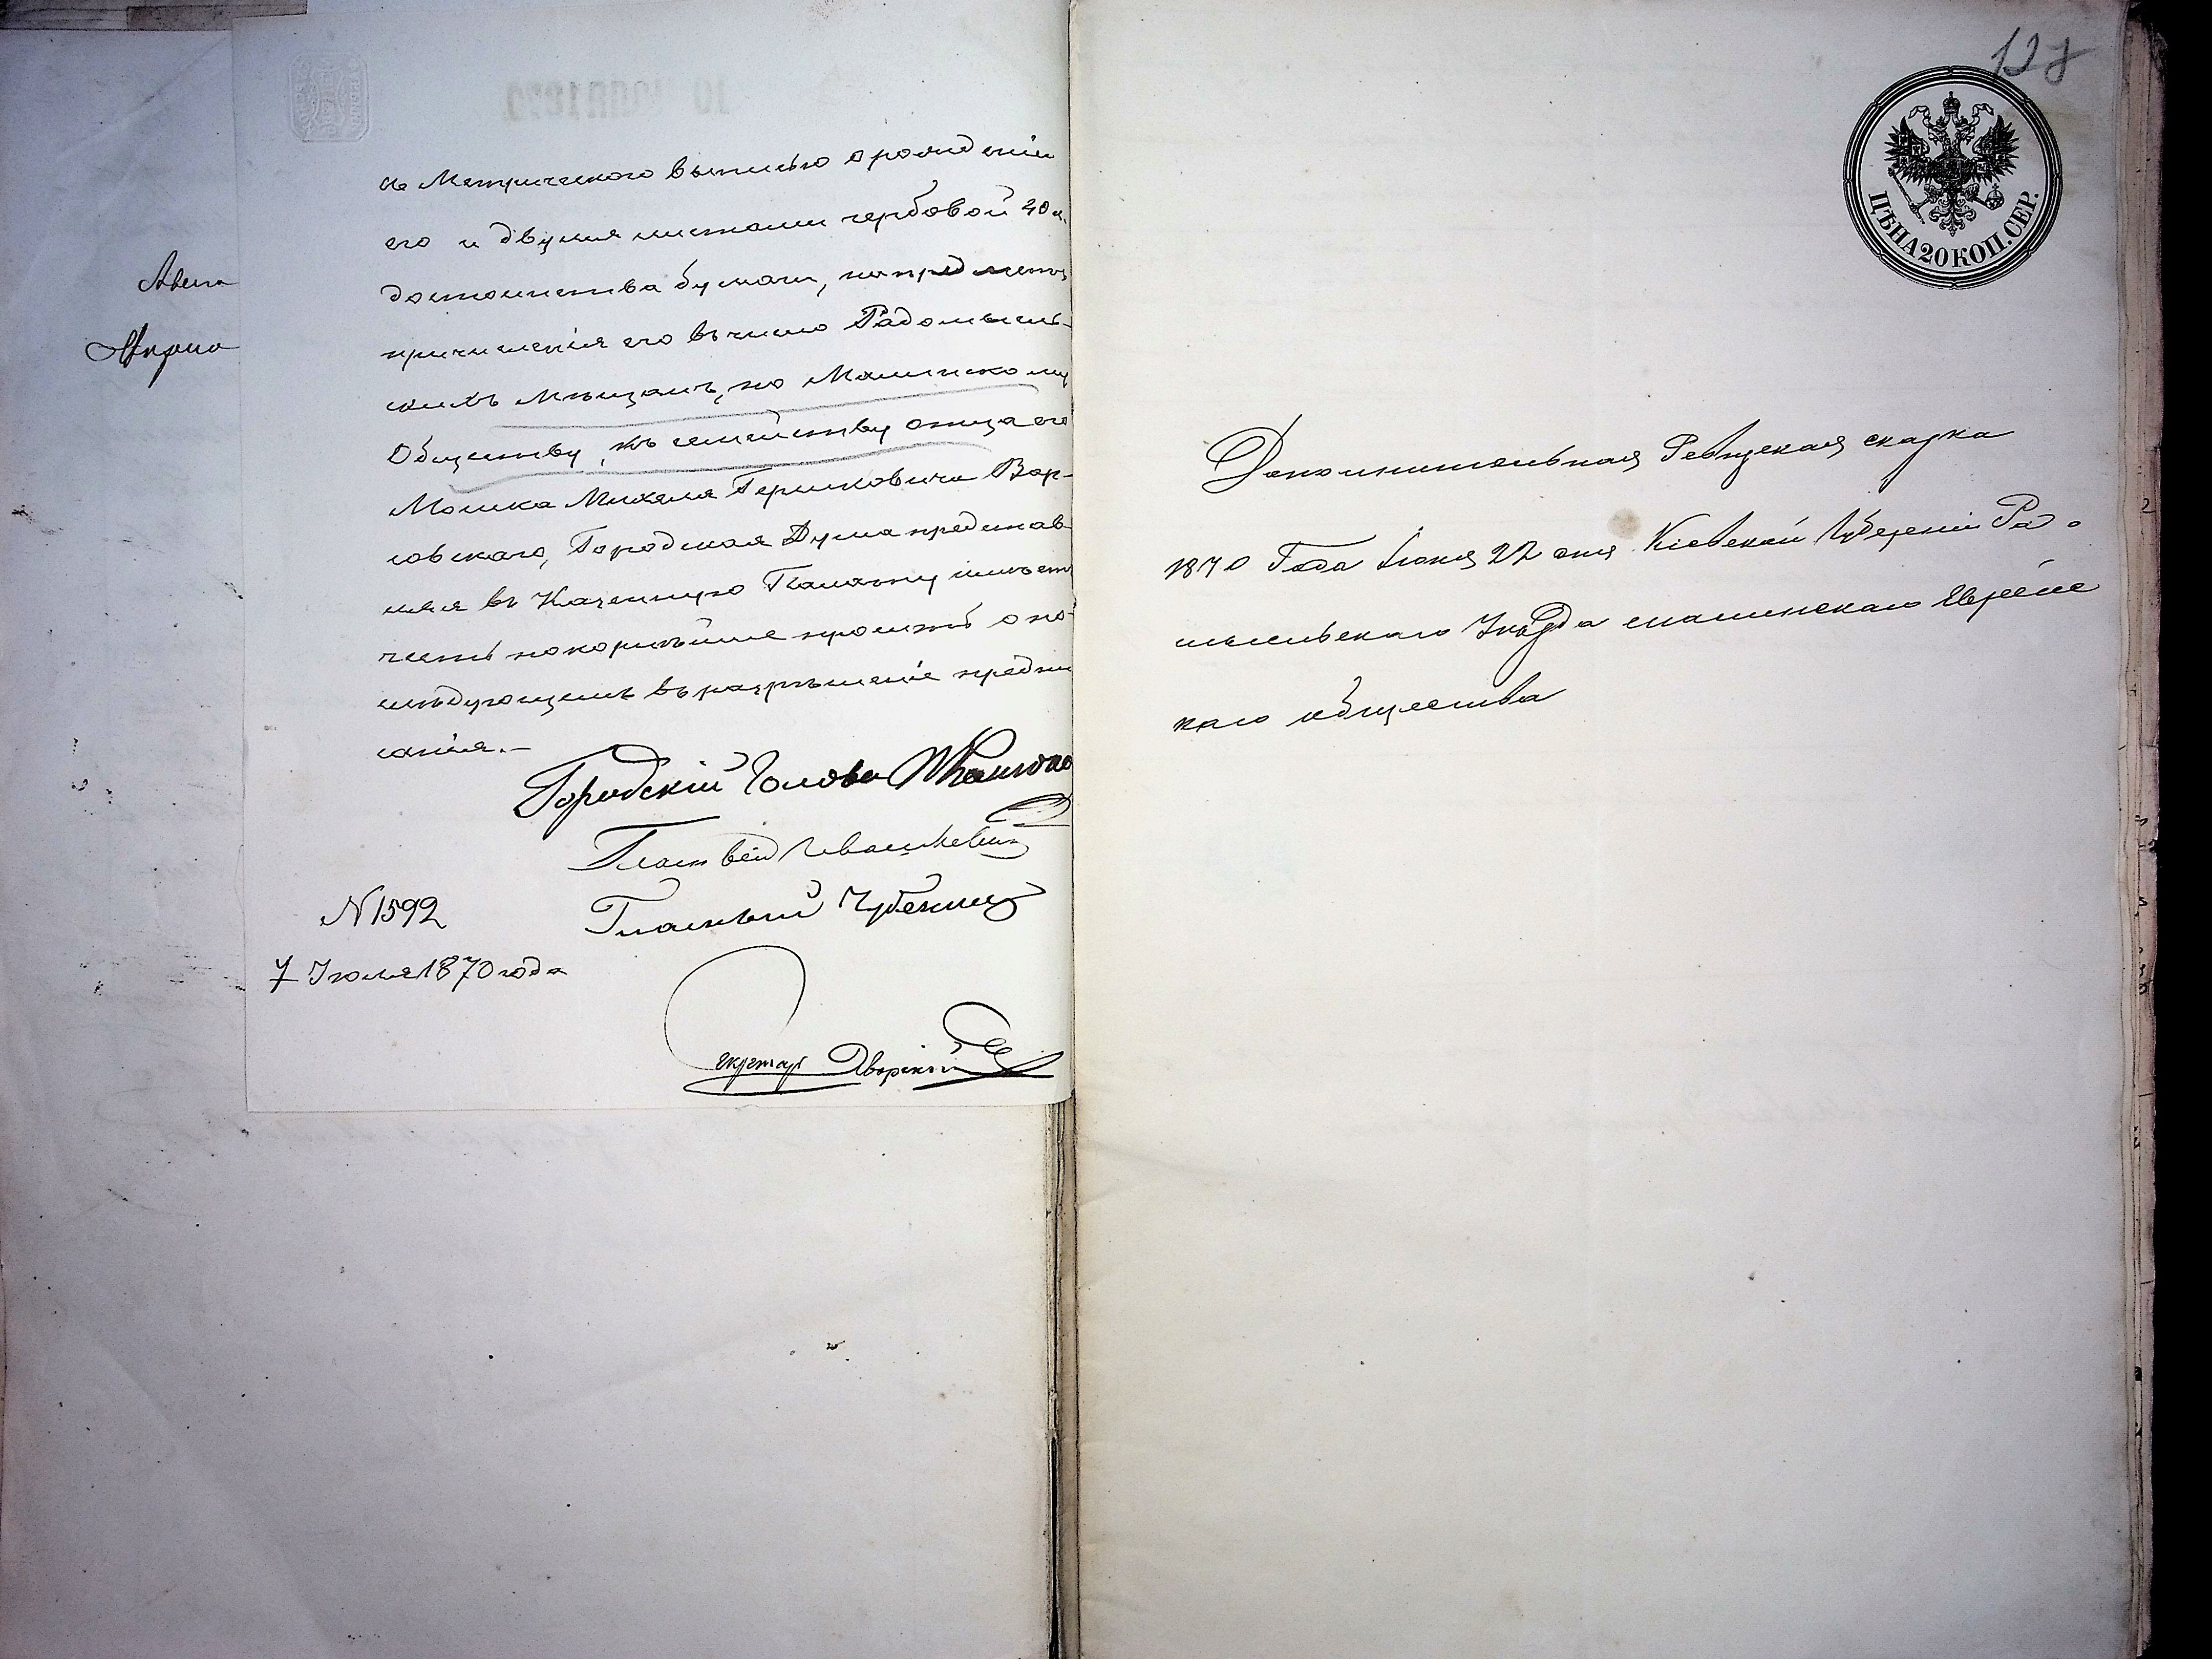 съ Метрическою выписью о рожденіи
его и двумя листами гербовой 20 к.
достоинства бумаги, на предметъ
причисленія его въ число Радомысль-
скихъ Мѣщанъ, по Малинскому
Обществу, къ семейству отца его
Мошка Михеля Гершковича Вар-
совскаго, Городская Дума представ-
ляя въ Казенную Палату имѣетъ
честь покорнѣйше просить о по-
слѣдующемъ въ разрѣшеніе предпи
санія.-
Городскій Голова
Гласный Ивашкевичъ
Гласный
N 1592
7 Іюля 1870 года
Секретарь Дворскій
128
ЦѢНА 20 КОП. СЕР.
Дополнительная Ревизская сказка
1870 Года Іюня 22 дня Кіевской Губерніи Радо
мысльскаго Уѣзда Малинскаго Еврейс
каго общества